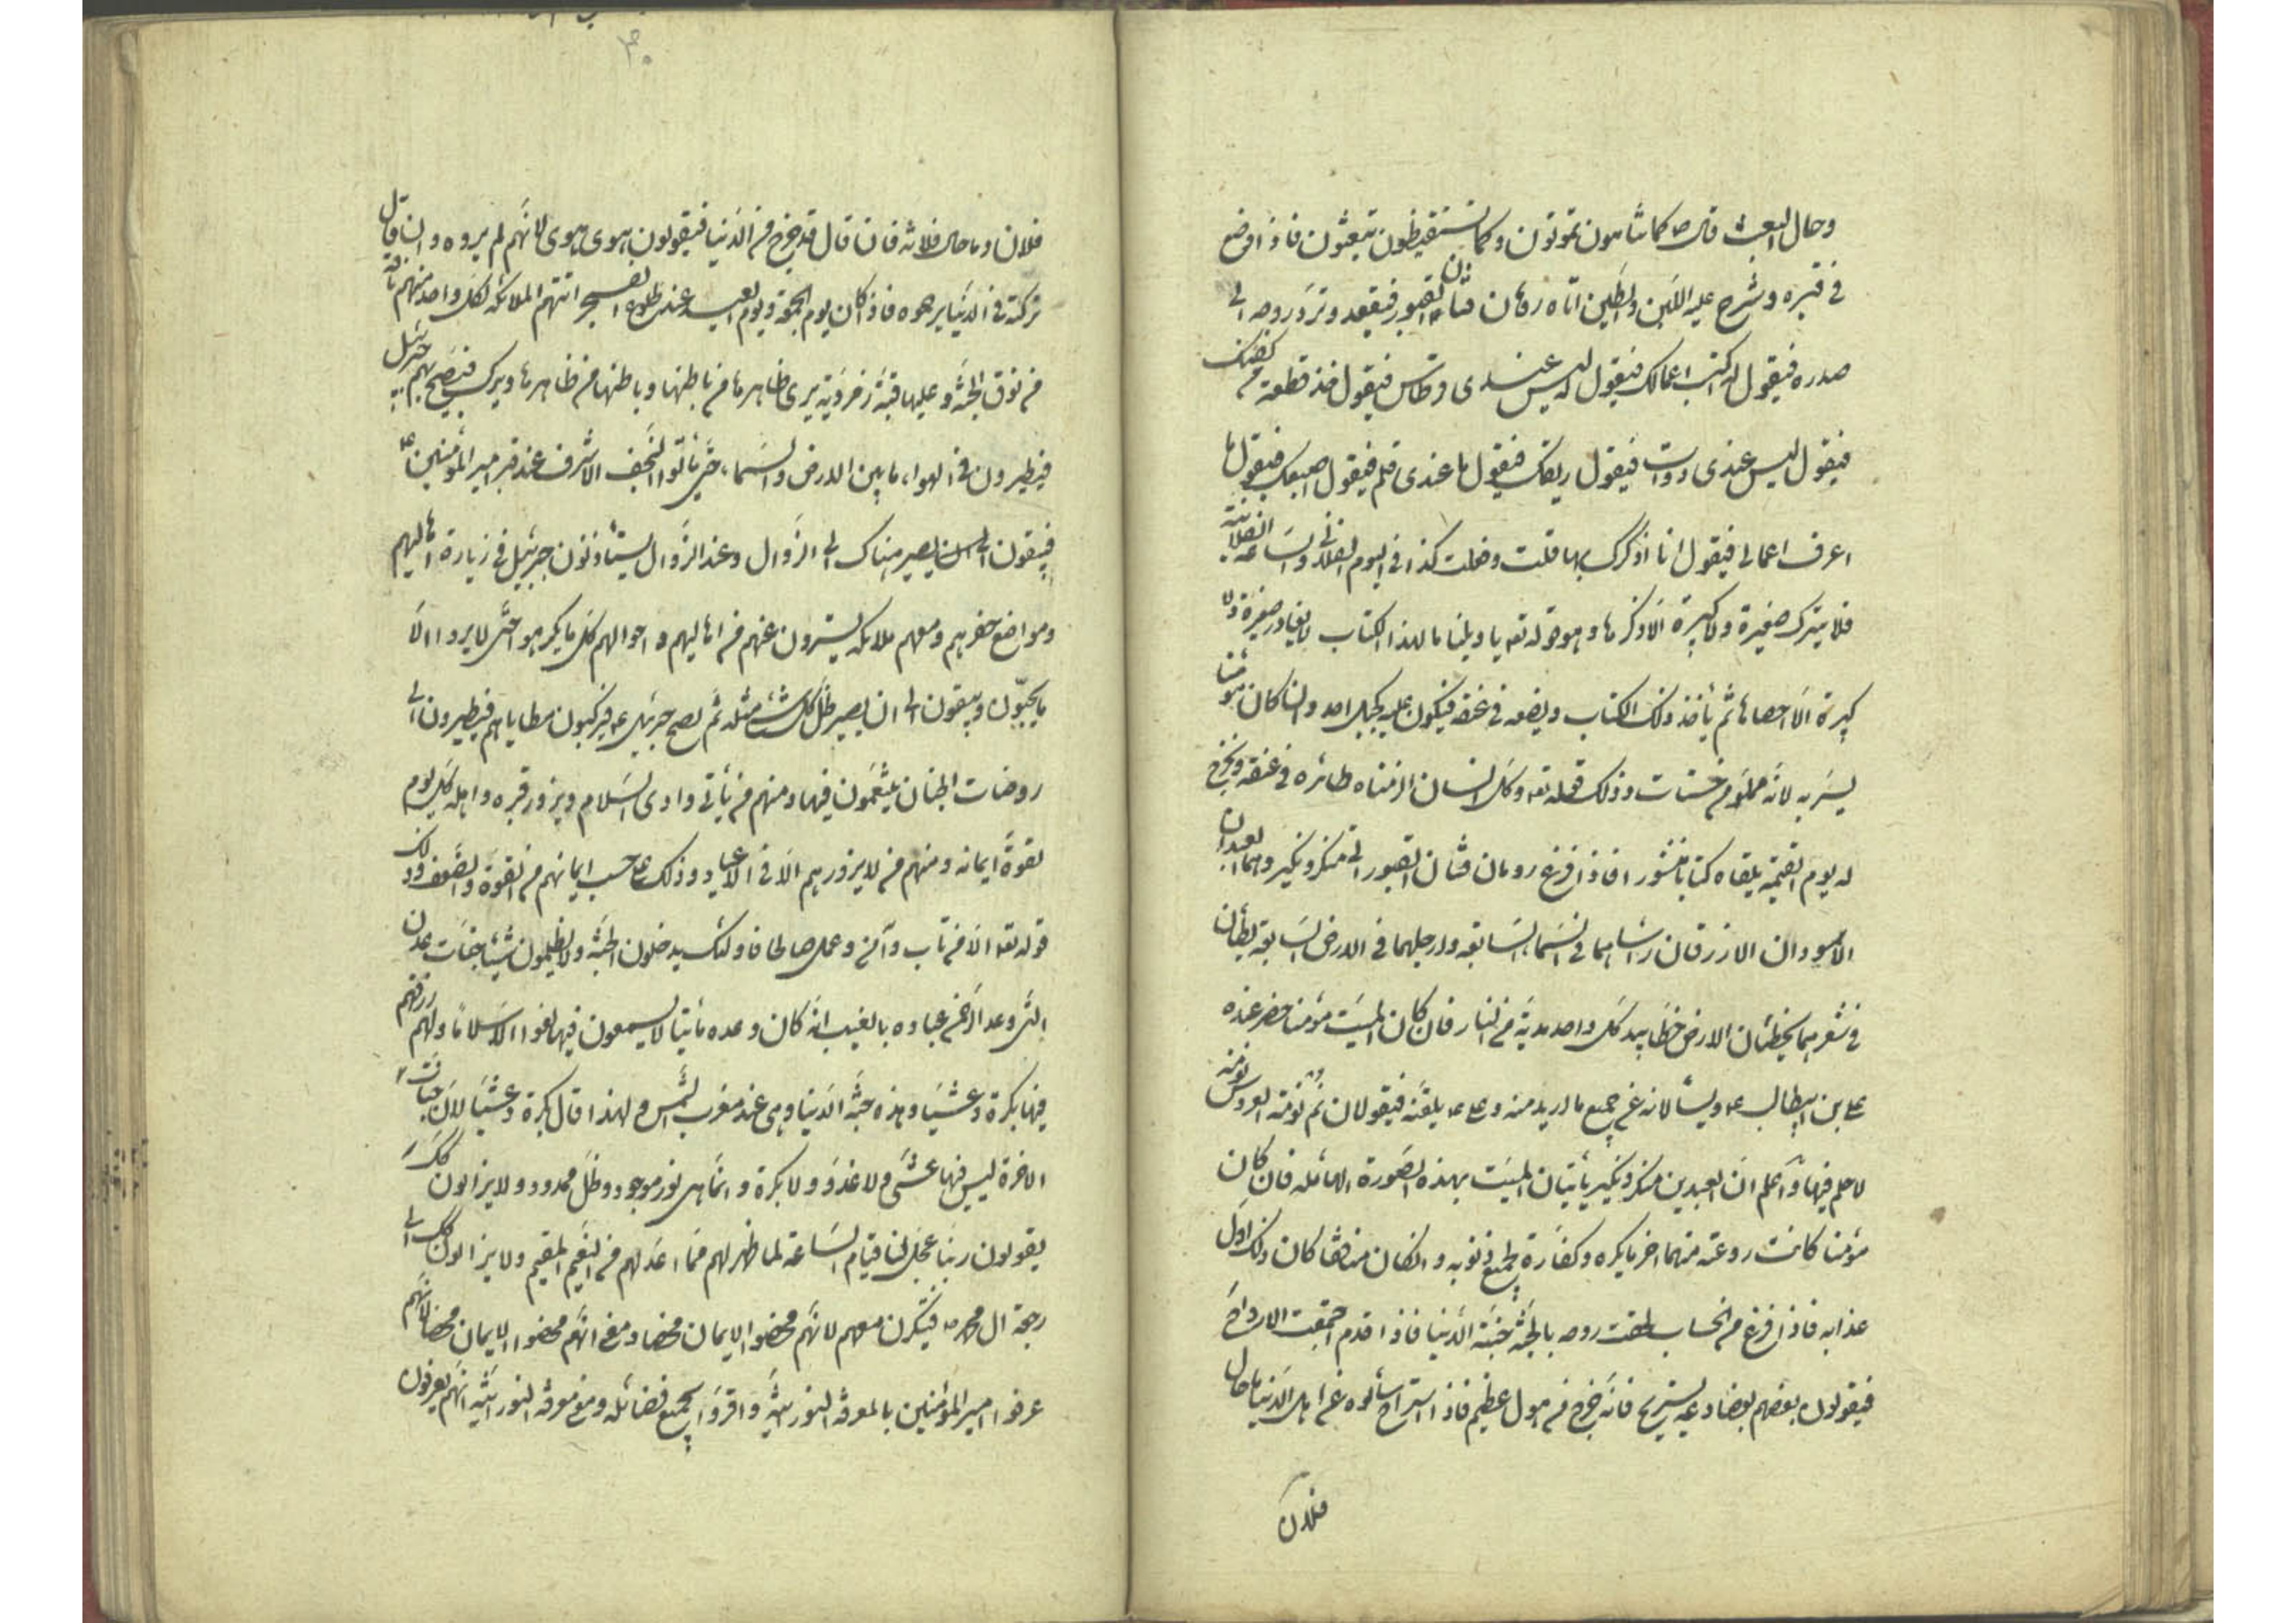 وحال البعث قال ص كما تنامون تموتون وكما تستيقظون تبعثون فاذا وضع
في قبره وشرج عليه اللبن والطين اتاه رومان فتان القبور فيقعد وترد روحه الى
صدره فيقول له اكتب اعمالك فيقول ليس عندي قرطاس فيقول خذ قطعة من كفنك
فيقول ليس عندي دوات فيقول ريقك فيقول ما عندي قلم فيقول اصبعك فيقول ما
اعرف اعمالي فيقول انا اذكرك بها قلت وفعلت كذا في اليوم الفلاني والساعة الفلانية
فلا يترك صغيرة ولا كبيرة الا ذكرها وهو قوله تعه يا ويلتنا ما لهذا الكتاب لا يغادر صغيرة ولا
كبيرة الا احصاها ثم يأخذ ذلك الكتاب ويضعه في عنقه فيكون عليه كجبل احد وان كان مؤمنا
يسر به لانه مملو من حسنات وذلك قوله تعه وكل انسان الزمناه طائره في عنقه ونخرج
له يوم القيمة يلقاه كتابا منشورا فاذا فرغ رومان فتان القبور اتى منكر ونكير وهما العبدان
الاسودان الازرقان رأساهما في السماء السابعة وارجلهما في الارض السابعة يطأان
في شعرهما يخطان الارض خطا بيد كل واحد مدية من النار فان كان الميت مؤمنا حضر عنده
علي بن ابيطالب ع ولا يسألانه عن جميع ما اريد منه وعلي ع يلقنه فيقولان نم نومة العروس نومة
لا حلم فيها واعلم ان العبدين منكر ونكير يأتيان الميت بهذه الصورة الهائلة فان كان
مؤمنا كانت روعته منهما اخر ما يكره وكفارة لجميع ذنوبه وان كان منافقا كان ذلك اول
عذابه فاذا فرغ من الحساب لحقت روحه بالجنة جنة الدنيا فاذا قدم اجتمعت الارواح
فيقولون بعضهم بعضا دعه يستريح فانه خرج من هول عظيم فاذا استراح سألوه عن اهل الدنيا ما حال
فلان
فلان وما حال فلانة فان قال قد خرج من الدنيا فيقولون هوى هوى لانهم لم يروه وان قال
تركته في الدنيا يرجوه فاذا كان يوم الجمعة ويوم العيد عند طلوع الفجر اتتهم الملائكة لكل واحد منهم ناقة
من نوق الجنة وعليها قبة زمردية يرى ظاهرها من باطنها وباطنها من ظاهرها ويركب فيصيح بهم جبرئيل
فيطيرون في الهواء ما بين الارض والسماء حتى يأتوا النجف الاشرف عند قبر امير المؤمنين ع
فيبقون الى ان يصير هناك الى الزوال وعند الزوال يستأذنون جبرئيل في زيارة اهاليهم
ومواضع حفرهم ومعهم ملائكة يسترون عنهم من اهاليهم واحوالهم كل ما يكرهو حتى لا يروا الا
ما يحبون ويبقون الى ان يصير ظل كل شئ مثله ثم يصيح جبرئيل ع فيركبون مطاياهم فيطيرون الى
روضات الجنان يتنعمون فيها ومنهم من يأتي وادي السلام ويزور قبره واهله كل يوم
لقوة ايمانه ومنهم من لا يزورهم الا في الاعياد وذلك على حسب ايمانهم من القوة والضعف وذلك
قوله تعه الا من تاب وآمن وعمل صالحا فاولئك يدخلون الجنة ولا يظلمون شيئا جنات عدن
التي وعد الرحمن عباده بالغيب انه كان وعده مأتيا لا يسمعون فيها لغوا الا سلاما ولهم رزقهم
فيها بكرة وعشيا وهذه جنة الدنيا وهي عند مغرب الشمس ولهذا قال بكرة وعشيا لان جنات
الاخرة ليس فيها عشى ولا غدو ولا بكرة وانما هى نور موجود وظل ممدود ولا يزالون كك
يقولون ربنا عجل لنا قيام الساعة لما ظهر لهم مما اعد لهم من النعيم المقيم ولا يزالون كك الى
رجعة ال محمد ص فيكرون معهم لانهم محضوا الايمان محضا ومعنى انهم محضوا الايمان محضا لانهم
عرفوا امير المؤمنين بالمعرفة النورانية واقروا بجميع فضائله ومعنى معرفة النورانية انهم يعرفون